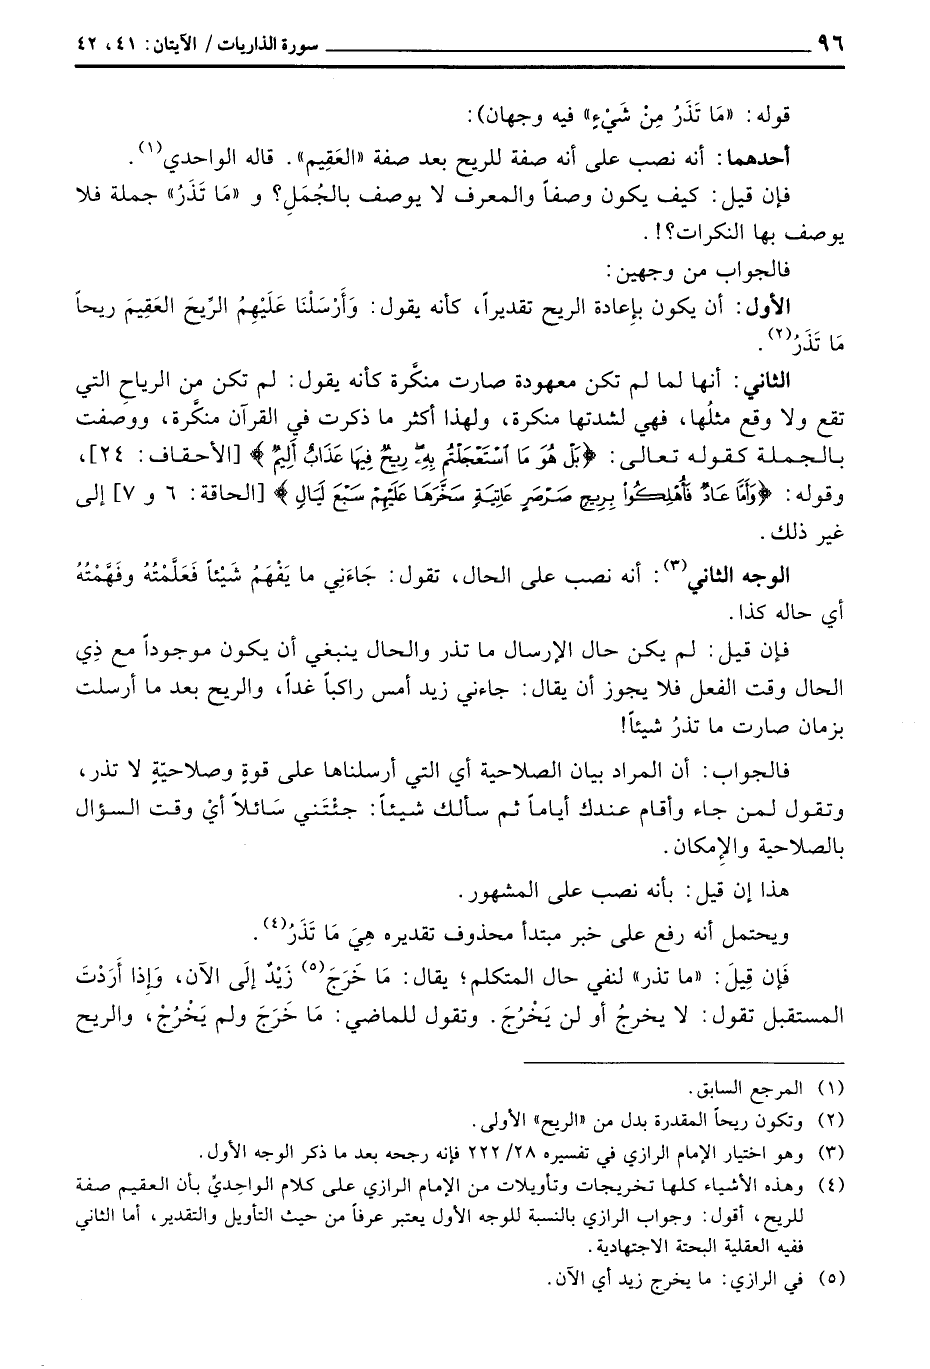 ٩٦ سورة الذاريات / الآيتان: ٤١، ٤٢
قوله: «مَا تَذَرُ مِنْ شَيْءٍ» فيه وجهان):
أحدهما: أنه نصب على أنه صفة للريح بعد صفة «العَقِيم». قاله الواحدي(١).
فإن قيل: كيف يكون وصفاً والمعرف لا يوصف بالجُمَلِ؟ و «مَا تَذَرُ» جملة فلا
يوصف بها النكرات؟!.
فالجواب من وجهين:
الأول: أن يكون بإعادة الريح تقديراً، كأنه يقول: وَأَرْسَلْنَا عَلَيْهِمُ الرِّيحَ العَقِيمَ ريحاً
مَا تَذَرُ(٢).
الثاني: أنها لما لم تكن معهودة صارت منكَّرة كأنه يقول: لم تكن من الرياح التي
تقع ولا وقع مثلُها، فهي لشدتها منكرة، ولهذا أكثر ما ذكرت في القرآن منكَّرة، ووصفت
بالجملة كقوله تعالى: ﴿بَلْ هُوَ مَا ٱسْتَعْجَلْتُم بِهِۦ رِيحٌ فِيهَا عَذَابٌ أَلِيمٌ﴾ [الأحقاف: ٢٤]،
وقوله: ﴿وَأَمَّا عَادٌ فَأُهْلِكُوا۟ بِرِيحٍ صَرْصَرٍ عَاتِيَةٍ سَخَّرَهَا عَلَيْهِمْ سَبْعَ لَيَالٍ﴾ [الحاقة: ٦ و ٧] إلى
غير ذلك.
الوجه الثاني(٣): أنه نصب على الحال، تقول: جَاءَنِي ما يَفْهَمُ شَيْئاً فَعَلَّمْتُهُ وفَهَّمْتُهُ
أي حاله كذا.
فإن قيل: لم يكن حال الإرسال ما تذر والحال ينبغي أن يكون موجوداً مع ذِي
الحال وقت الفعل فلا يجوز أن يقال: جاءني زيد أمس راكباً غداً، والريح بعد ما أرسلت
بزمان صارت ما تذرُ شيئاً!
فالجواب: أن المراد بيان الصلاحية أي التي أرسلناها على قوةٍ وصلاحيّةٍ لا تذر،
وتقول لمن جاء وأقام عندك أياماً ثم سألك شيئاً: جئْتَني سَائلاً أيْ وقت السؤال
بالصلاحية والإمكان.
هذا إن قيل: بأنه نصب على المشهور.
ويحتمل أنه رفع على خبر مبتدأ محذوف تقديره هِيَ مَا تَذَرُ(٤).
فَإن قِيلَ: «ما تذر» لنفي حال المتكلم؛ يقال: مَا خَرَجَ(٥) زَيْدٌ إلَى الآن، وَإذا أَرَدْتَ
المستقبل تقول: لا يخرجُ أو لن يَخْرُجَ. وتقول للماضي: مَا خَرَجَ ولم يَخْرُجْ، والريح
(١) المرجع السابق.
(٢) وتكون ريحاً المقدرة بدل من «الريح» الأولى.
(٣) وهو اختيار الإمام الرازي في تفسيره ٢٨/ ٢٢٢ فإنه رجحه بعد ما ذكر الوجه الأول.
(٤) وهذه الأشياء كلها تخريجات وتأويلات من الإمام الرازي على كلام الواحِديِّ بأن العقيم صفة
للريح، أقول: وجواب الرازي بالنسبة للوجه الأول يعتبر عرفاً من حيث التأويل والتقدير، أما الثاني
ففيه العقلية البحتة الاجتهادية.
(٥) في الرازي: ما يخرج زيد أي الآن.